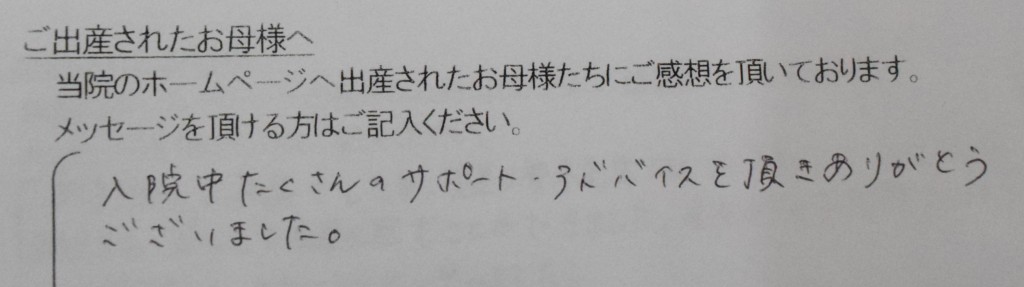 ご出産されたお母様へ
当院のホームページへ出産されたお母様たちにご感想を頂いております。
メッセージを頂ける方はご記入ください。
入院中たくさんのサポート・アドバイスを頂きありがとう
ございました。